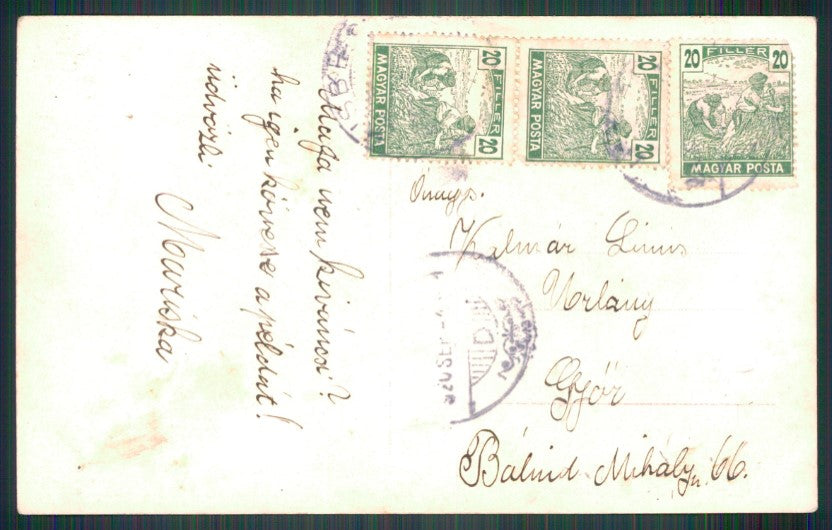 20 FILLÉR 20
MAGYAR POSTA
20 FILLÉR 20
MAGYAR POSTA
20 FILLÉR 20
MAGYAR POSTA
Maga nem kiváncsi?
ha igen kövesse a példát!
üdvözli
Mariska
Önags.
Kalmár Linus
Urlány
Győr
Bálint Mihály u. 66.
920 SEP